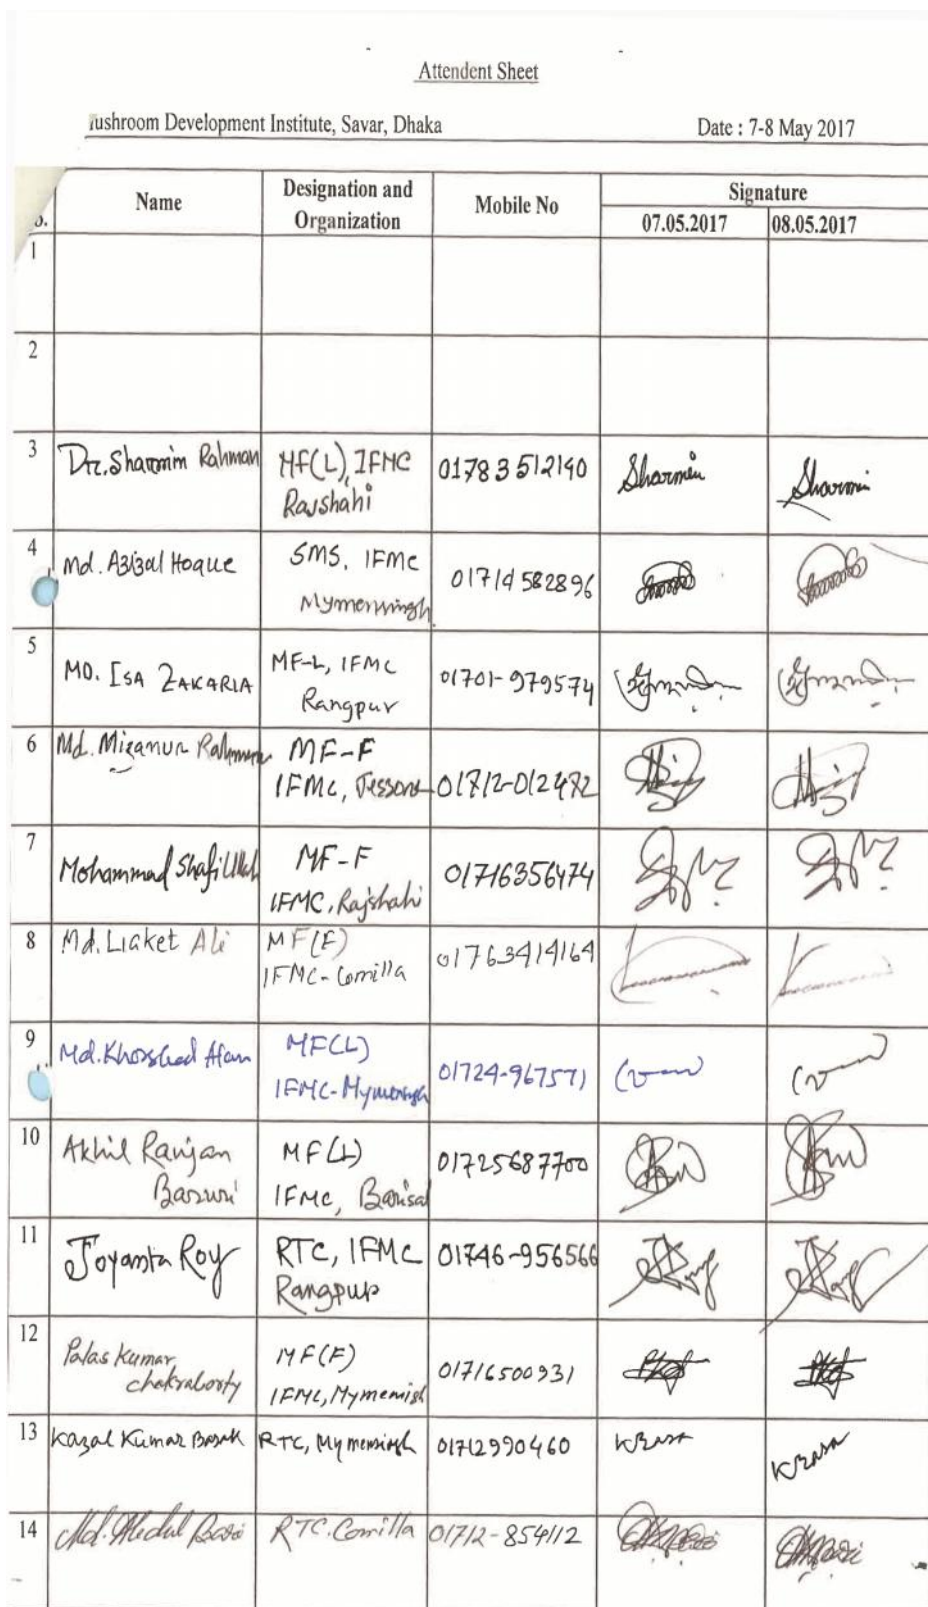 Attendent Sheet
ushroom Development Institute, Savar, Dhaka Date : 7-8 May 2017
Name Designation and Organization Mobile No Signature
07.05.2017 08.05.2017
1
2
3 Dr. Sharmin Rahman MF(L), IFMC Rajshahi 01783512140 Sharmin Sharmin
4 Md. Azizal Hoque SMS, IFMC Mymensingh 01714582896
5 MD. ISA ZAKARIA MF-L, IFMC Rangpur 01701-979574
6 Md. Mizanur Rahman MF-F IFMC, Jessore 01712-012472
7 Mohammad Shafi Ullah MF-F IFMC, Rajshahi 01716356474
8 Md. Liaket Ali MF(F) IFMC-Comilla 01763414164
9 Md. Khorshed Alam MF(L) IFMC-Mymensingh 01724-967571
10 Akhil Ranjan MF(L) IFMC, Barisal 01725687700
11 Joyanta Roy RTC, IFMC Rangpur 01746-956566
12 Palas Kumar chakraborty MF(F) IFMC, Mymensigh 01716500931
13 Kazal Kumar Basak RTC, Mymensingh 01712990460
14 Md. Abdul RTC. Comilla 01712-854112